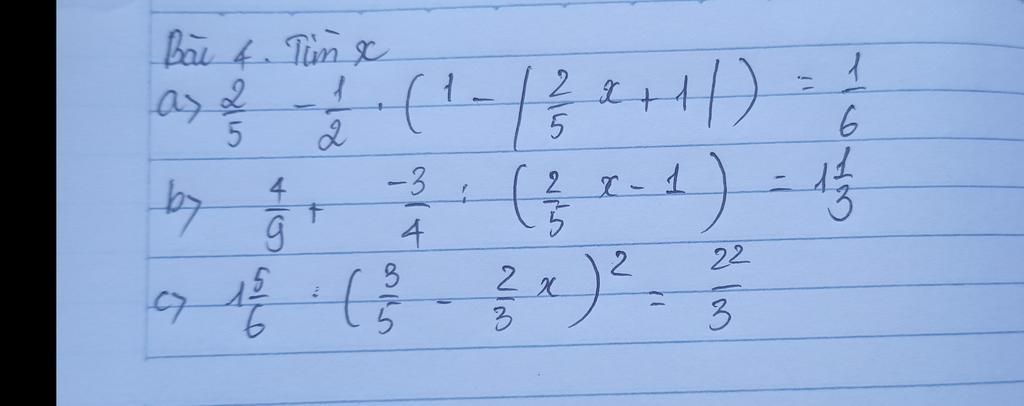 Bài 4. Tìm x
a> 2/5 - 1/2 . (1 - |2/5 x + 1|) = 1/6
b> 4/9 + -3/4 : (2/5 x - 1) = 1 1/3
c> 1 5/6 : (3/5 - 2/3 x)² = 22/3